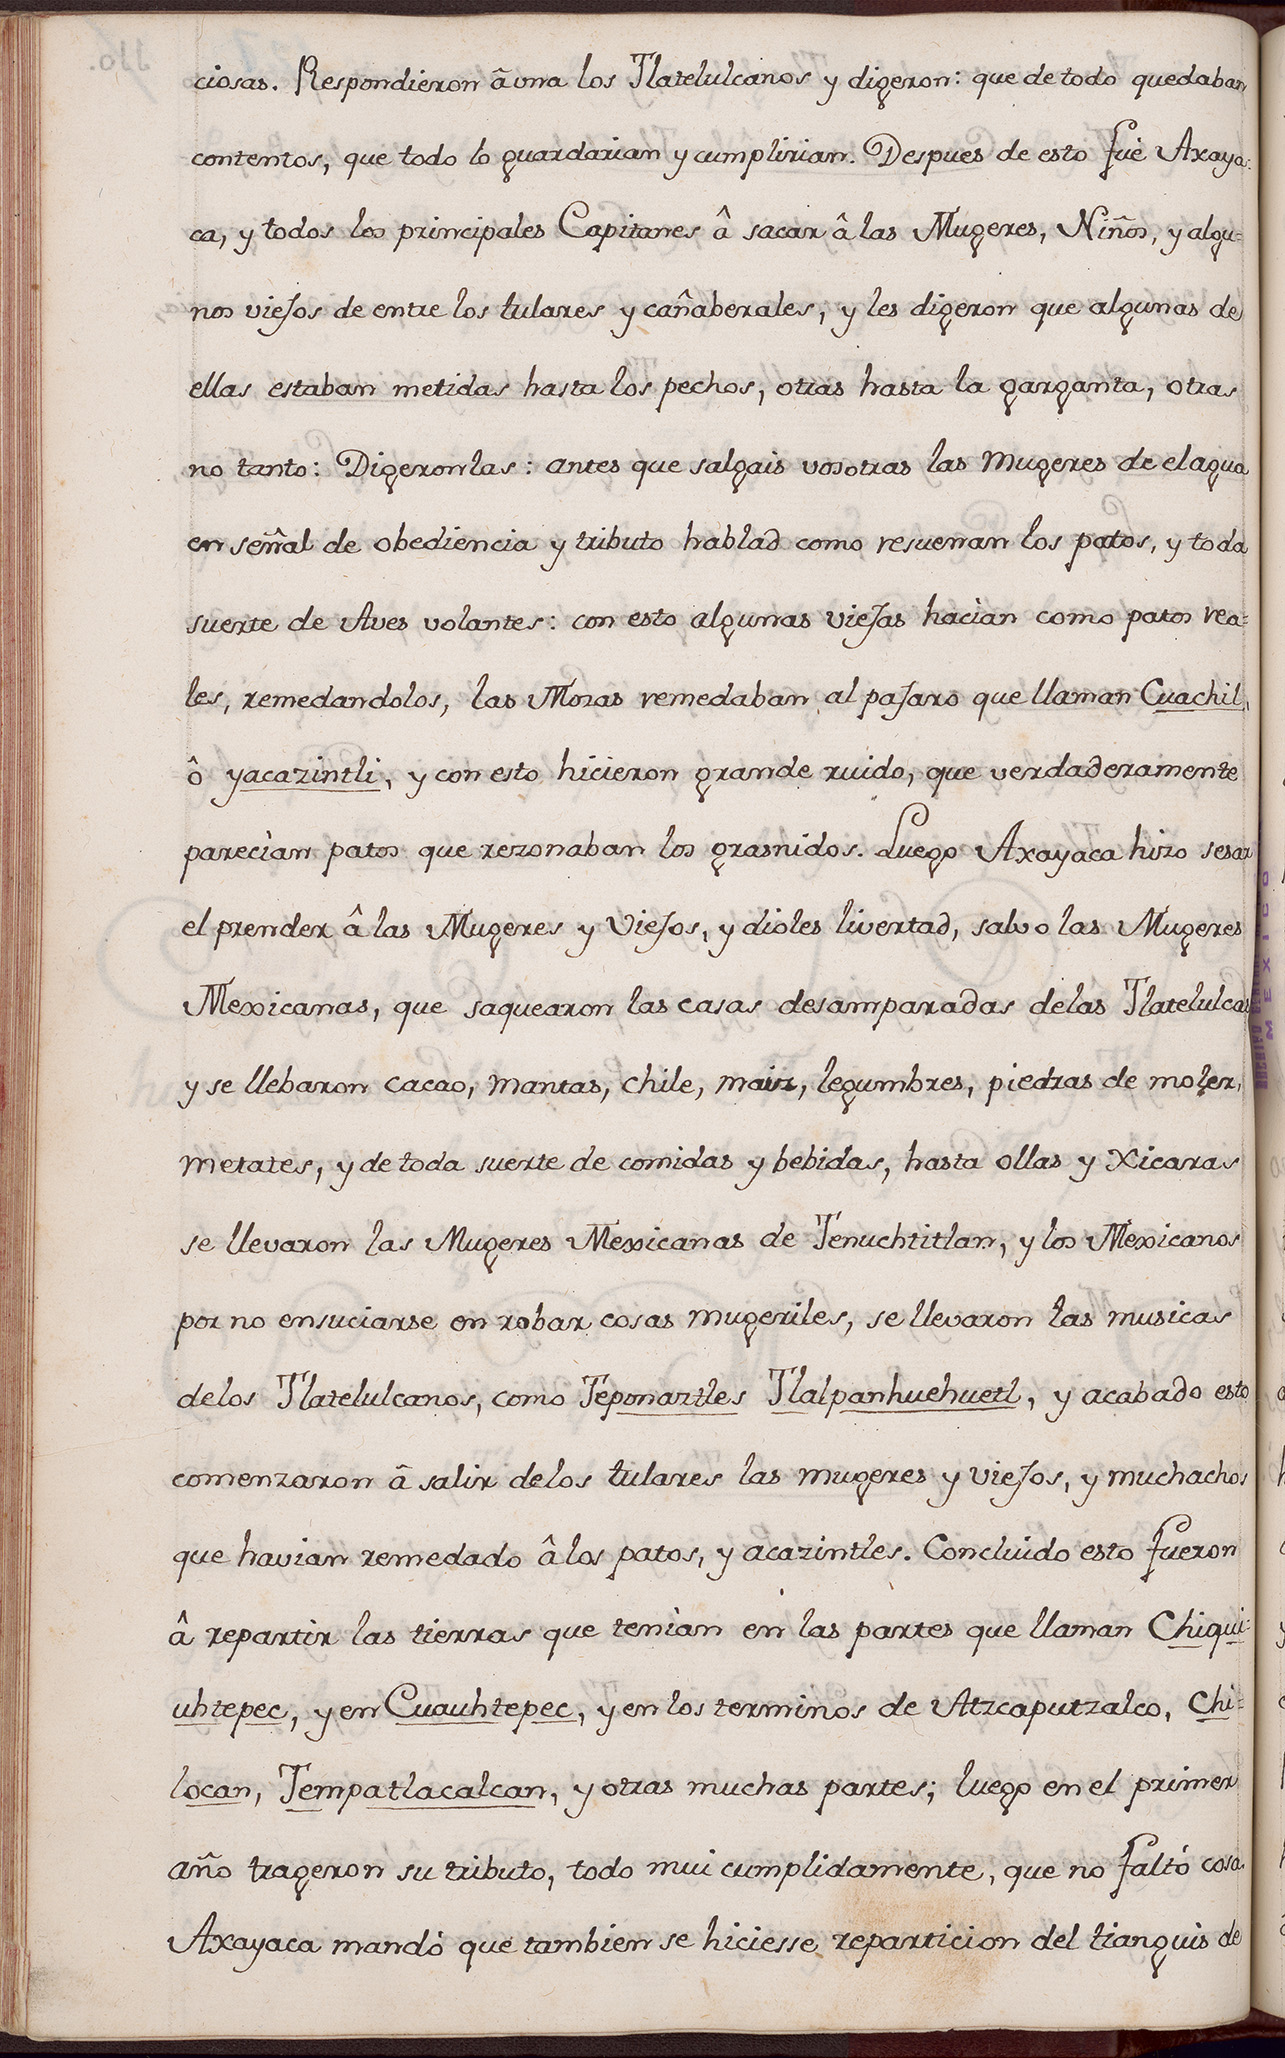 ciosas. Respondieron â una los Tlatelulcanos y digeron: que de todo quedaban
contentos, que todo lo guardarian y cumplirian. Despues de esto fuè Axaya=
ca, y todos los principales Capitanes â sacar â las Mugeres, Niños, y algu=
nos viejos de entre los tulares y cañaberales, y les digeron que algunas de
ellas estaban metidas hasta los pechos, otras hasta la garganta, otras
no tanto: Digeronlas: antes que salgais vosotras las Mugeres de el agua
en señal de obediencia y tributo hablad como resuenan los patos, y toda
suerte de Aves volantes: con esto algunas viejas hacìan como patos rea=
les, remedandolos, las Mozas remedaban al pajaro que llaman Cuachil,
ô yacazintli, y con esto hicieron grande ruido, que verdaderamente
parecìan patos que rezonaban los grasnidos. Luego Axayaca hizo sesar
el prender â las Mugeres y Viejos, y dioles livertad, salvo las Mugeres
Mexicanas, que saquearon las casas desamparadas delas Tlatelulcas
y se llebaron cacao, mantas, chile, maiz, legumbres, piedras de moler,
metates, y de toda suerte de comidas y bebidas, hasta ollas y xicaras
se llevaron las Mugeres Mexicanas de Tenuchtitlan, y los Mexicanos
por no ensuciarse en robar cosas mugeriles, se llevaron las musicas
delos Tlatelulcanos, como Teponaztles Tlalpanhuehuetl, y acabado esto
comenzaron â salir delos tulares las mugeres y viejos, y muchachos
que havian remedado â los patos, y acazintles. Concluido esto fueron
â repartir las tierras que tenìan en las partes que llaman Chiqui=
uhtepec, y en Cuauhtepec, y en los terminos de Atzcaputzalco, Chi=
locan, Tempatlacalcan, y otras muchas partes; luego en el primer
año trageron su tributo, todo mui cumplidamente, que no faltó cosa.
Axayaca mandó que tambien se hiciesse reparticion del tianguis de